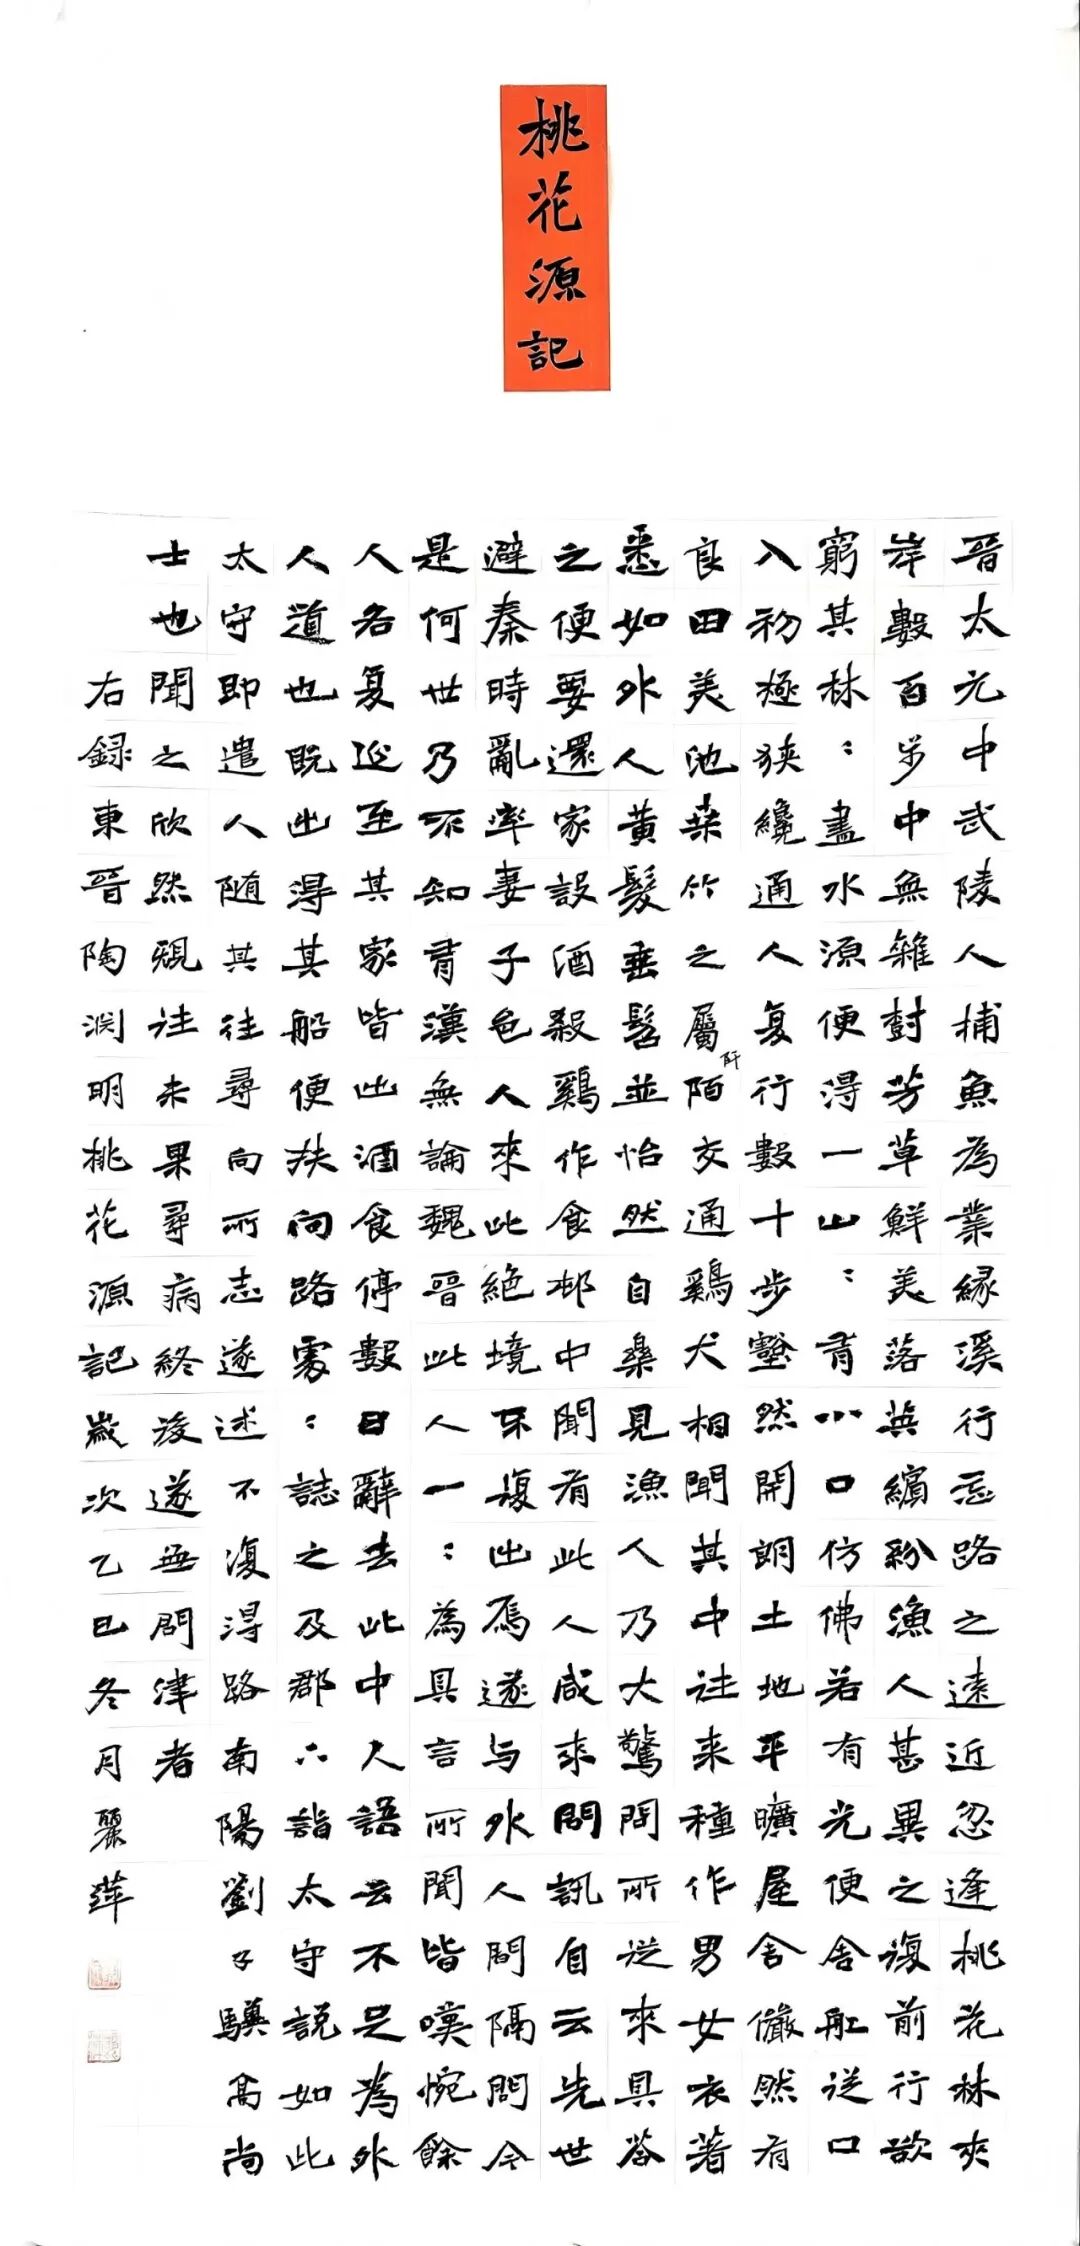 桃花源記
晉太元中武陵人捕魚為業緣溪行忘路之遠近忽逢桃花林夾
岸數百步中無雜樹芳草鮮美落英繽紛漁人甚異之復前行欲
窮其林：盡水源便得一山：有小口仿佛若有光便舍舩從口
入初極狹纔通人复行數十步豁然開朗土地平曠屋舍儼然有
良田美池桑竹之屬阡陌交通鷄犬相聞其中往来種作男女衣著
悉如外人黃髮垂髫並怡然自樂見漁人乃大驚問所從來具答
之便要還家設酒殺鷄作食邨中聞有此人咸來問訊自云先世
避秦時亂率妻子邑人來此絕境不復出焉遂与外人間隔問今
是何世乃不知有漢無論魏晉此人一：為具言所聞皆嘆惋餘
人各复延至其家皆出酒食停數日辭去此中人語云不足為外
人道也既出得其船便扶向路處：誌之及郡下詣太守説如此
太守即遣人随其往尋向所志遂述不復得路南陽劉子驥高尚
士也聞之欣然規往未果尋病終後遂無問津者
右録東晉陶淵明桃花源記歲次乙巳冬月麗萍